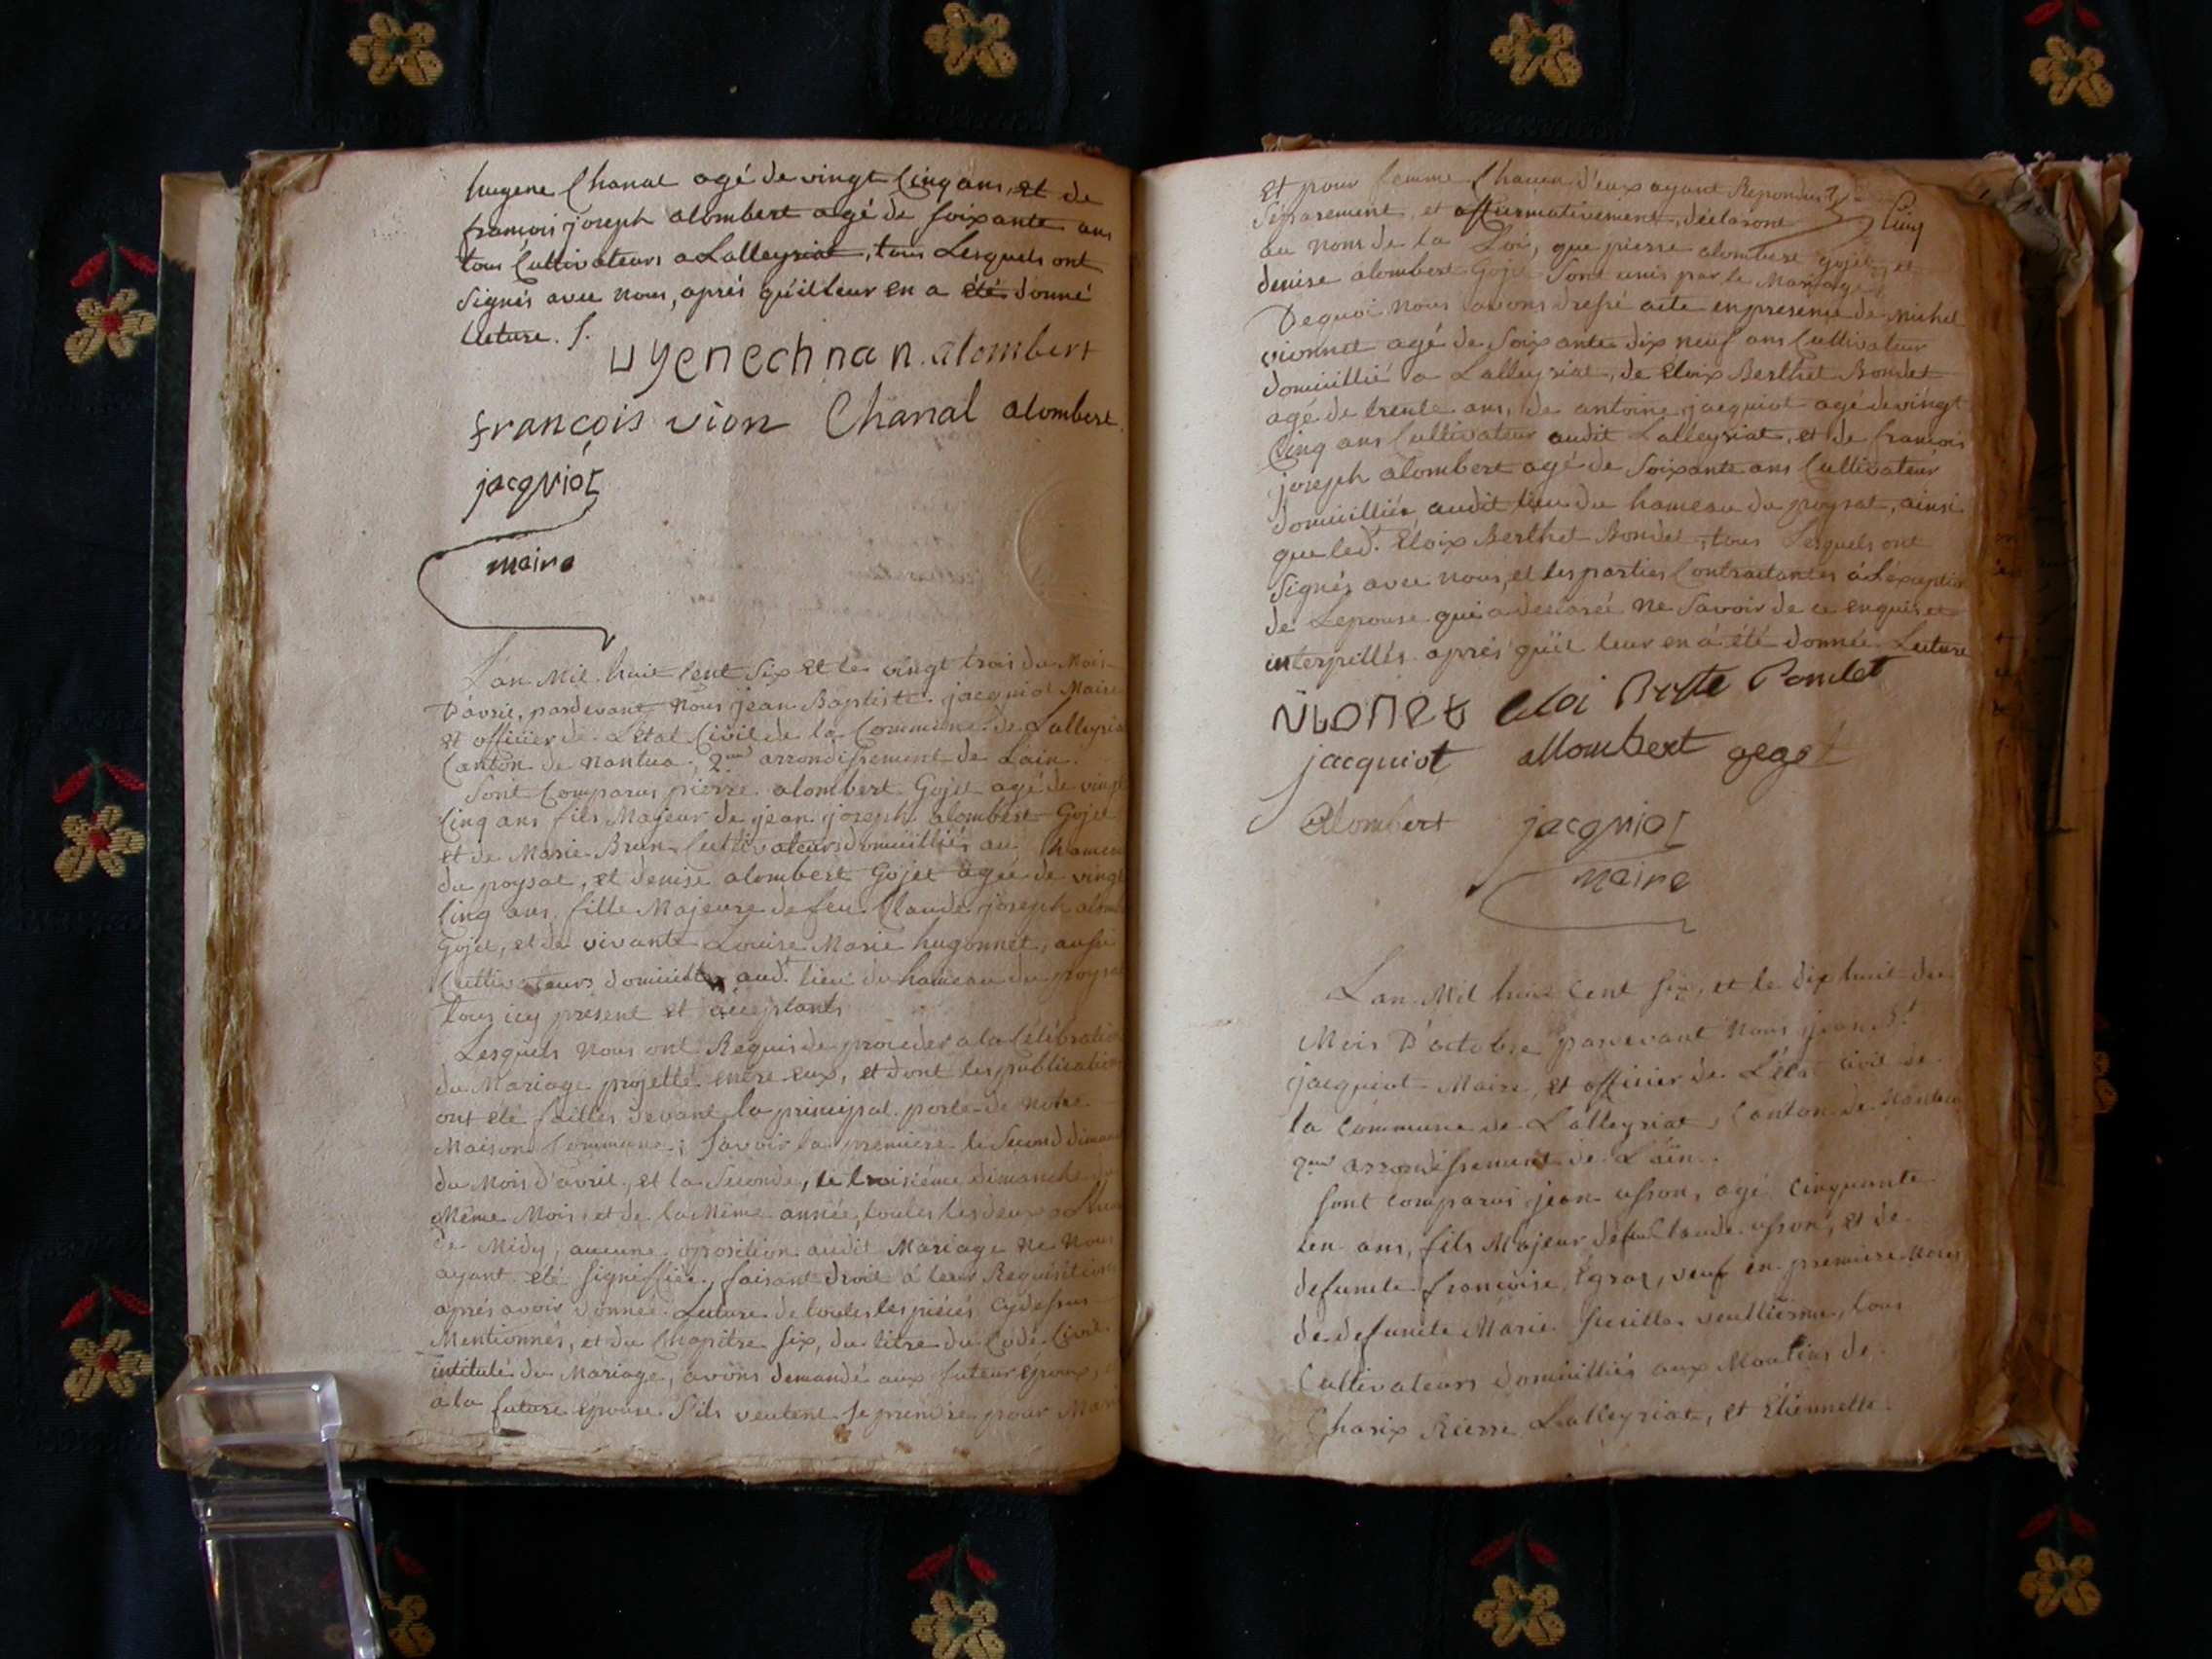 hugene Chanal agé de vingt Cinq ans, et de
françois joseph alombert agé de soixante ans
tous Cultivateurs a Lalleyriat, tous Lesquels ont
signés avec nous, aprés qu'il leur en a été donné
Lecture. /.
alombert
françois vion Chanal alombert
jacquiot
maire
L'an Mil huit Cent Six et le vingt trois du Mois
D'avril, pardevant Nous jean Baptiste jacquiot Maire
et officier de L'état Civil de la Commune de Lalleyria
Canton de nantua, 2me arrondissement de L'ain.
Sont Comparus pierre alombert Gojet agé de vingt
Cinq ans fils Majeur de jean joseph alombert Gojet
et de Marie Brun Cultivateurs domicilliés au hameau
du poysat, et denise alombert Gojet agée de vingt
Cinq ans, fille Majeure de feu Claude joseph alom
Gojet, et de vivante Louise Marie hugonnet, aussi
Cultivateurs domicilliés aud.t lieu du hameau du poysa
tous icy present et acceptants
Lesquels Nous ont Requis de proceder a la Célébration
du Mariage projetté entre eux, et dont les publications
ont été faittes devant la principal porte de Notre
Maison Commune; savoir la premiere le second diman
du Mois d'avril, et la seconde, le troisiéme dimanche du
Même Mois et de la Même année, toutes les deux a L'heu
de Midy, aucune oposition audit Mariage ne Nous
ayant été signiffiée, faisant droit á leur Requisition
aprés avoir donnée Lecture de toutes les piéces cy dessus
Mentionnés, et du Chapitre six, du titre du Code Civil
intitulé du Mariage, avons demandé aux futeur epoux, e
a la future épouse s'ils veulent se prendre pour Mari
et pour femme Chacun d'eux ayant Repondus
séparement, et affirmativement, déclarons Cinq
au Nom de la Loi, que pierre alombert gojet, et
denise alombert Gojet sont unis par le Mariage
De quoi Nous avons dressé acte en presence de Michel
vionnet agé de soixante dix neuf ans Cultivateur
domicillié a Lalleyriat, de éloix Berthet Bondet
agé de trente ans, de antoine jacquiot agé de vingt
Cinq ans Cultivateur audit Lalleyriat, et de françois
joseph alombert agé de soixante ans Cultivateur
domicilliés audit lieu du hameau du poysat, ainsi
que led.t éloix Berthet Bondet, tous Lesquels ont
signés avec nous, et les parties Contractantes á L'éxceptio
de Lepouse qui a declarée ne savoir de ce enquis et
interpellés aprés qu'il leur en á été donnée Lecture
vionet
jacquiot allombert goget
Alombert jacquiot
maire
L'an Mil huit Cent six, et le dix huit du
Mois D'octobre pardevant Nous jean B.t
jacquiot Maire, et officier de L'état civil de
la commune de Lalleyriat, Canton de Nantua
2me arrondissement de L'ain.
sont comparus jean usson, agé cinquante
un ans, fils Majeur de feu Claude usson, et de
defuncte françoise Egraz, veuf en premiere noces
de defuncte Marie veuillerme, tous
Cultivateurs domicilliés aux Moulins de
Charix Riere Lalleyriat, et Etiennette